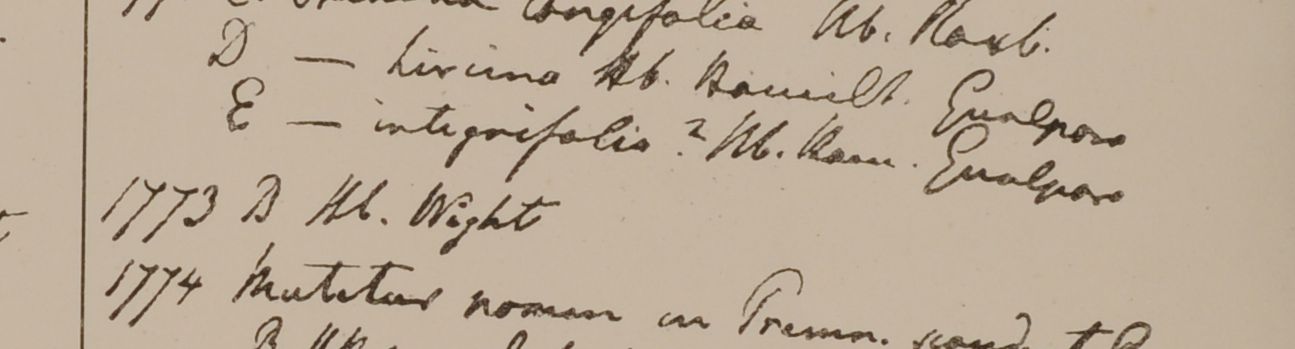 longifolia Hb. Roxb.
D — hircina Hb. Hamilt. Gualpara
E — integrifolia? Hb. Ham. Gualpara
1773 B Hb. Wight
1774 Mutetur nomen in Premn.
B